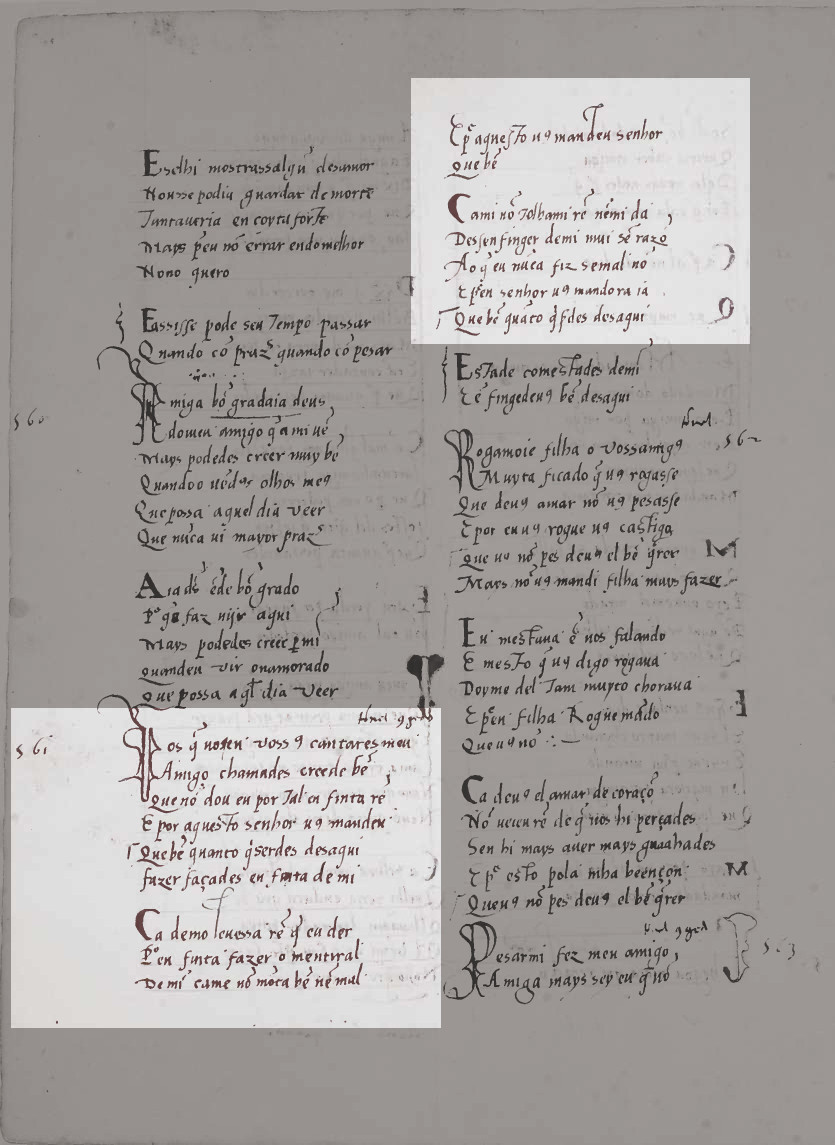 Eselhi mostrassalgũ desamor
Nonsse podia guardar de morte
Tantaveria en coyta forte
Mays p̃eu nõ errar endomelhor
Nono quero
E assisse pode seu Tempo passar
Quando cõ praz quando cõ pesar
560
Amiga bõ gradaia deus
do meu amigo q̃ a mi uẽ
Mays podedes creer muy bẽ
Quando o uẽ dos olhos meꝯ
Que possa aquel dia veer
Que nũca ui mayor praz
Aia ds̃ ẽde bõ grado
P̃ o faz uijr aqui
Mays podedes creer p̱ mi
quandeu vir o namorado
Que possa aql̃ dia veer
561
Pos q̃ voss ꝯ cantares meu
Amigo chamades creede bẽ
Que nõ dou eu por Tal en finta rẽ
E por aquesto senhor uꝯ mandeu
Que bẽ quanto q̃serdes desaqui
fazer façades en finta de mi
Ca demo levessa rẽ q̃ eu der
P̃ en finta fazer o mentiral
De mi came nõ mõta bẽ nẽ mal
E p̃ aquesto uꝯ mandeu senhor
Que bẽ
Ca mi nõ Tolhami rẽ nẽ mi da
Dessenfinger de mi mui sẽ razõ
Ao q̃ eu nũca fiz se mal nõ
E p̃en senhor uꝯ mandora ia
Que bẽ quãto q̃ſdes desaqui
Estade comestades de mi
E ẽ fingedeuꝯ bẽ desaqui
562
Rogamoie filha o vossamigꝯ
Muyta ficado q̃ uꝯ rogasse
Que deuꝯ amar nõ uꝯ pesasse
E por en uꝯ rogue uꝯ castigo
Que uꝯ nõ pes deuꝯ el bẽ q̃rer
Mays nõ uꝯ mandi filha mays fazer
M
Eu mestaua ẽ uos falando
E mesto q̃ uꝯ digo rogaua
Doyme del Tam muyto choraua
E p̃en filha Rogue mãdo
Que uꝯ nõ
Ca deuꝯ el amar de coraçõ
Nõ ueieu rẽ de q̃ uos hi perçades
Sen hi mays auer mays guaahades
E p̃ esto pola mha beençon
Que uꝯ nõ pes deuꝯ el bẽ q̃rer
M
563
Pesarmi fez meu amigo
Amiga mays sey eu q̃ nõ